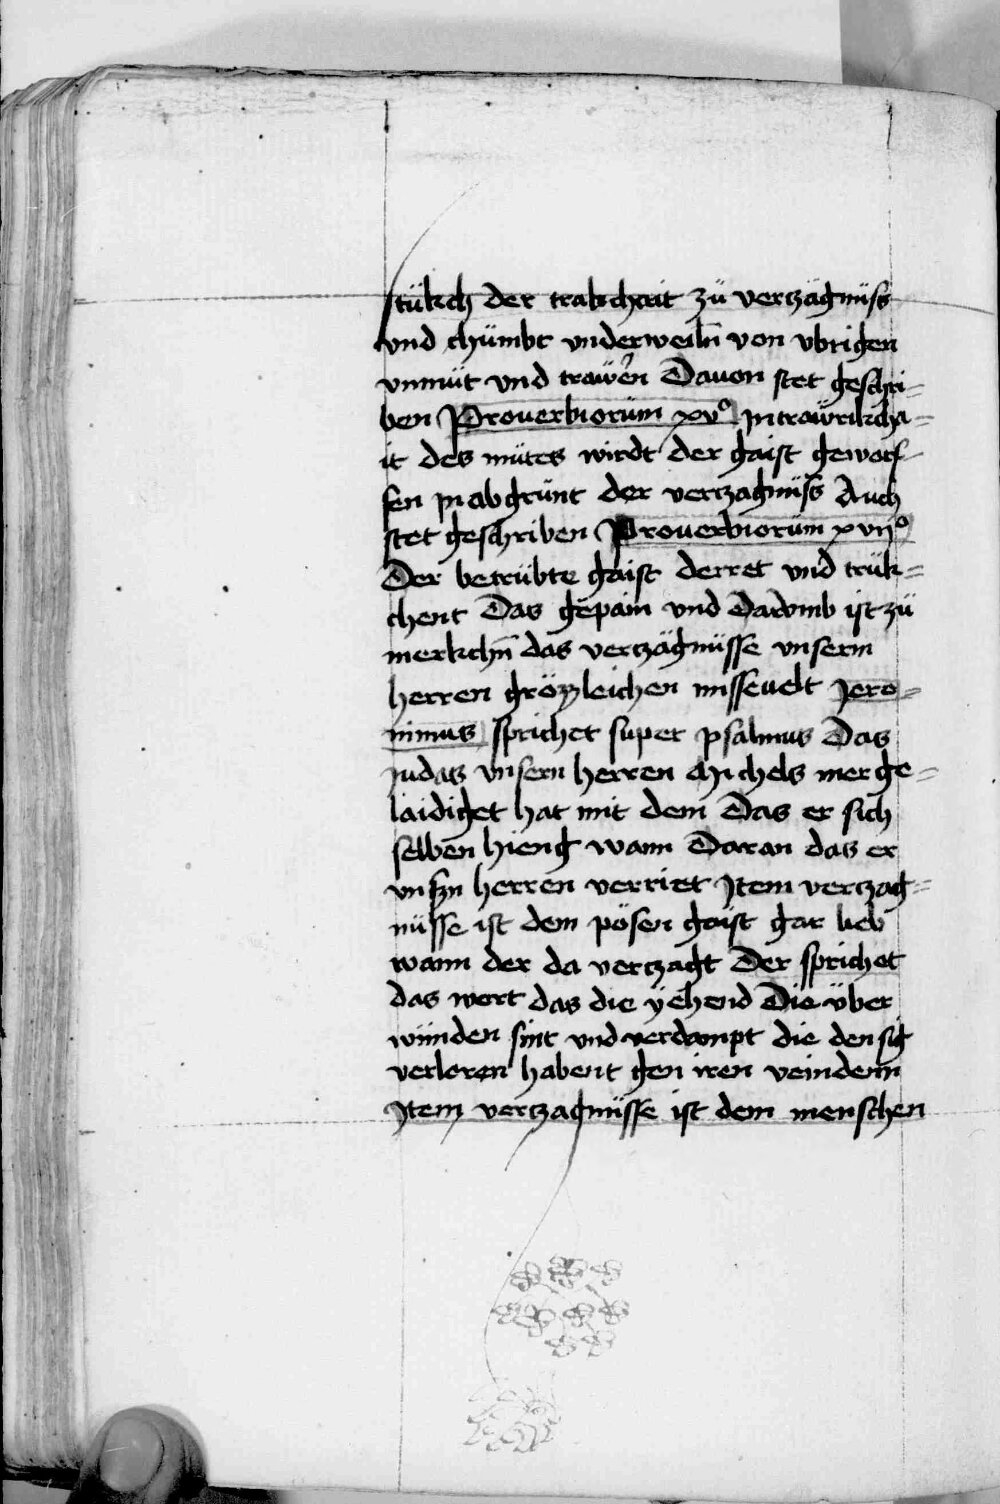 stükch der trakchait zü verczägnüss
vnd chümbt vnderweiln̄ von vbrigen
vnmüt vnd trawren Dauon stet geschri=
ben Prouerbiorüm xvº Jn trawrikcha=
it des mütes wirdt der gaist geworf=
fen jn abgrünt der verczagnüss Auch
stet geschriben Prouerbiorüm xvijº
Der betrübte gaist derret vnd trük=
chent Das gepain vnd Darvmb ist zü
merkchn̄ das verczägnüsse vnserm
herren grözzleichen missevelt Jero=
nimus sprichet super psalmus Das
judas vnsern herren michels mer ge=
laidiget hat mit dem Das er sich
selben hieng wann Daran das er
vnsm herren verriet Jtem verczag=
nüsse ist dem pösen gaist gar lieb
wann der da verczagt Der sprichet
das wort das die yehend Die über
wünden sint vnd verdampt die den sig
verloren habent gen iren veindenn
Jtem verczagnüsse ist dem menschen